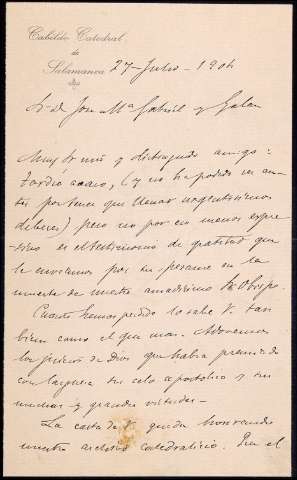 Cabildo Catedral
de
Salamanca
27-Julio-1904
Sr. D. Jose Mª Gabriel y Galan
Muy Sr mio y distinguido amigo:
tardio acaso, (y no ha podido ser an-
tes por tener que llenar urgentisimos
deberes) pero no por eso menos expre-
sivo es el testimonio de gratitud que
le enviamos por su pesame en la
muerte de nuestro amadisimo Sr Obispo.
Cuanto hemos perdido lo sabe V. tan
bien como el que mas. Adoremos
los juicios de Dios que habra premiado
con largueza su celo apostolico y sus
muchas y grandes virtudes-
La carta de V. queda honrando
nuestro archivo catedralicio. Por el